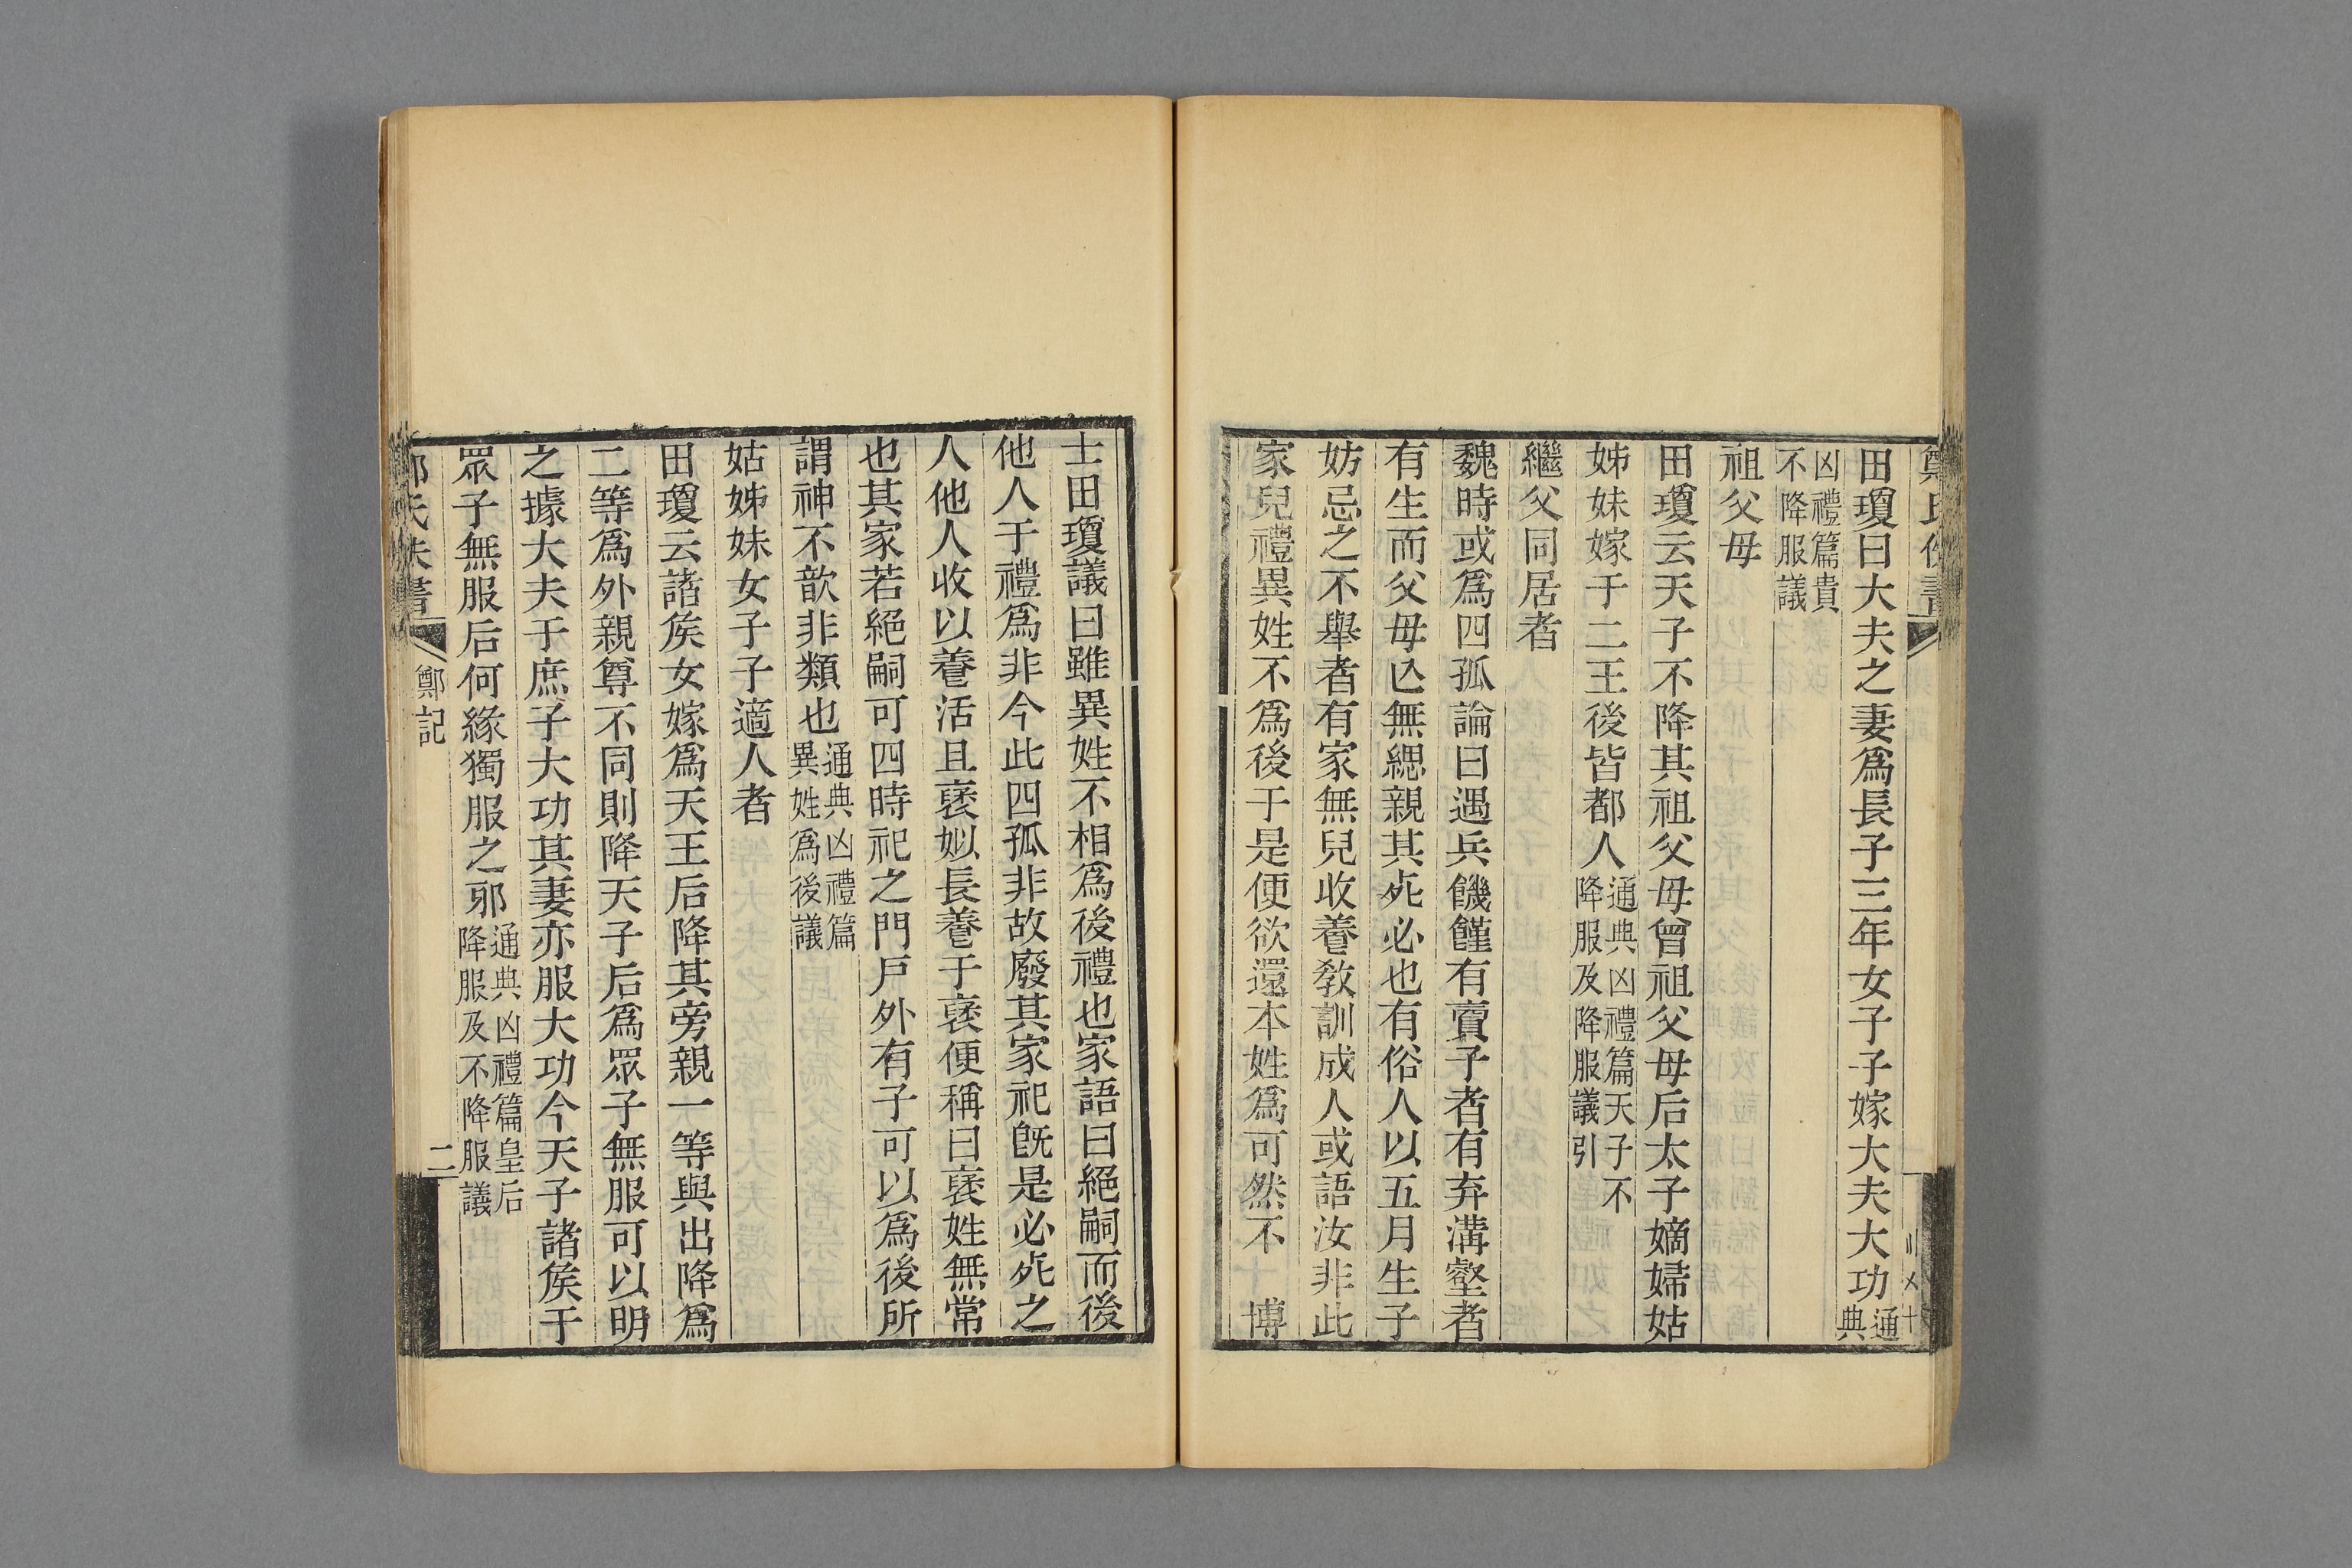 田瓊曰大夫之妻爲長子三年女子子嫁大夫大功通典
凶禮篇貴
不降服議
祖父母
田瓊云天子不降其祖父母曾祖父母后太子嫡婦姑
姊妹嫁于二王後皆都人通典凶禮篇天子不
降服及降服議引
繼父同居者
魏時或爲四孤論曰遇兵饑饉有賣子者有弃溝壑者
有生而父母亾無緦親其死必也有俗人以五月生子
妨忌之不舉者有家無兒收養敎訓成人或語汝非此
家兒禮異姓不爲後于是便欲還本姓爲可然不 博
士田瓊議曰雖異姓不相爲後禮也家語曰絕嗣而後
他人于禮爲非今此四孤非故廢其家祀旣是必死之
人他人收以養活且襃姒長養于襃便稱曰襃姓無常
也其家若絕嗣可四時祀之門戶外有子可以爲後所
謂神不歆非類也通典凶禮篇
異姓爲後議
姑姊妹女子子適人者
田瓊云諸矦女嫁爲天王后降其旁親一等與出降爲
二等爲外親尊不同則降天子后爲眾子無服可以明
之據大夫于庶子大功其妻亦服大功今天子諸矦于
眾子無服后何緣獨服之邪通典凶禮篇皇后
降服及不降服議
鄭記
二